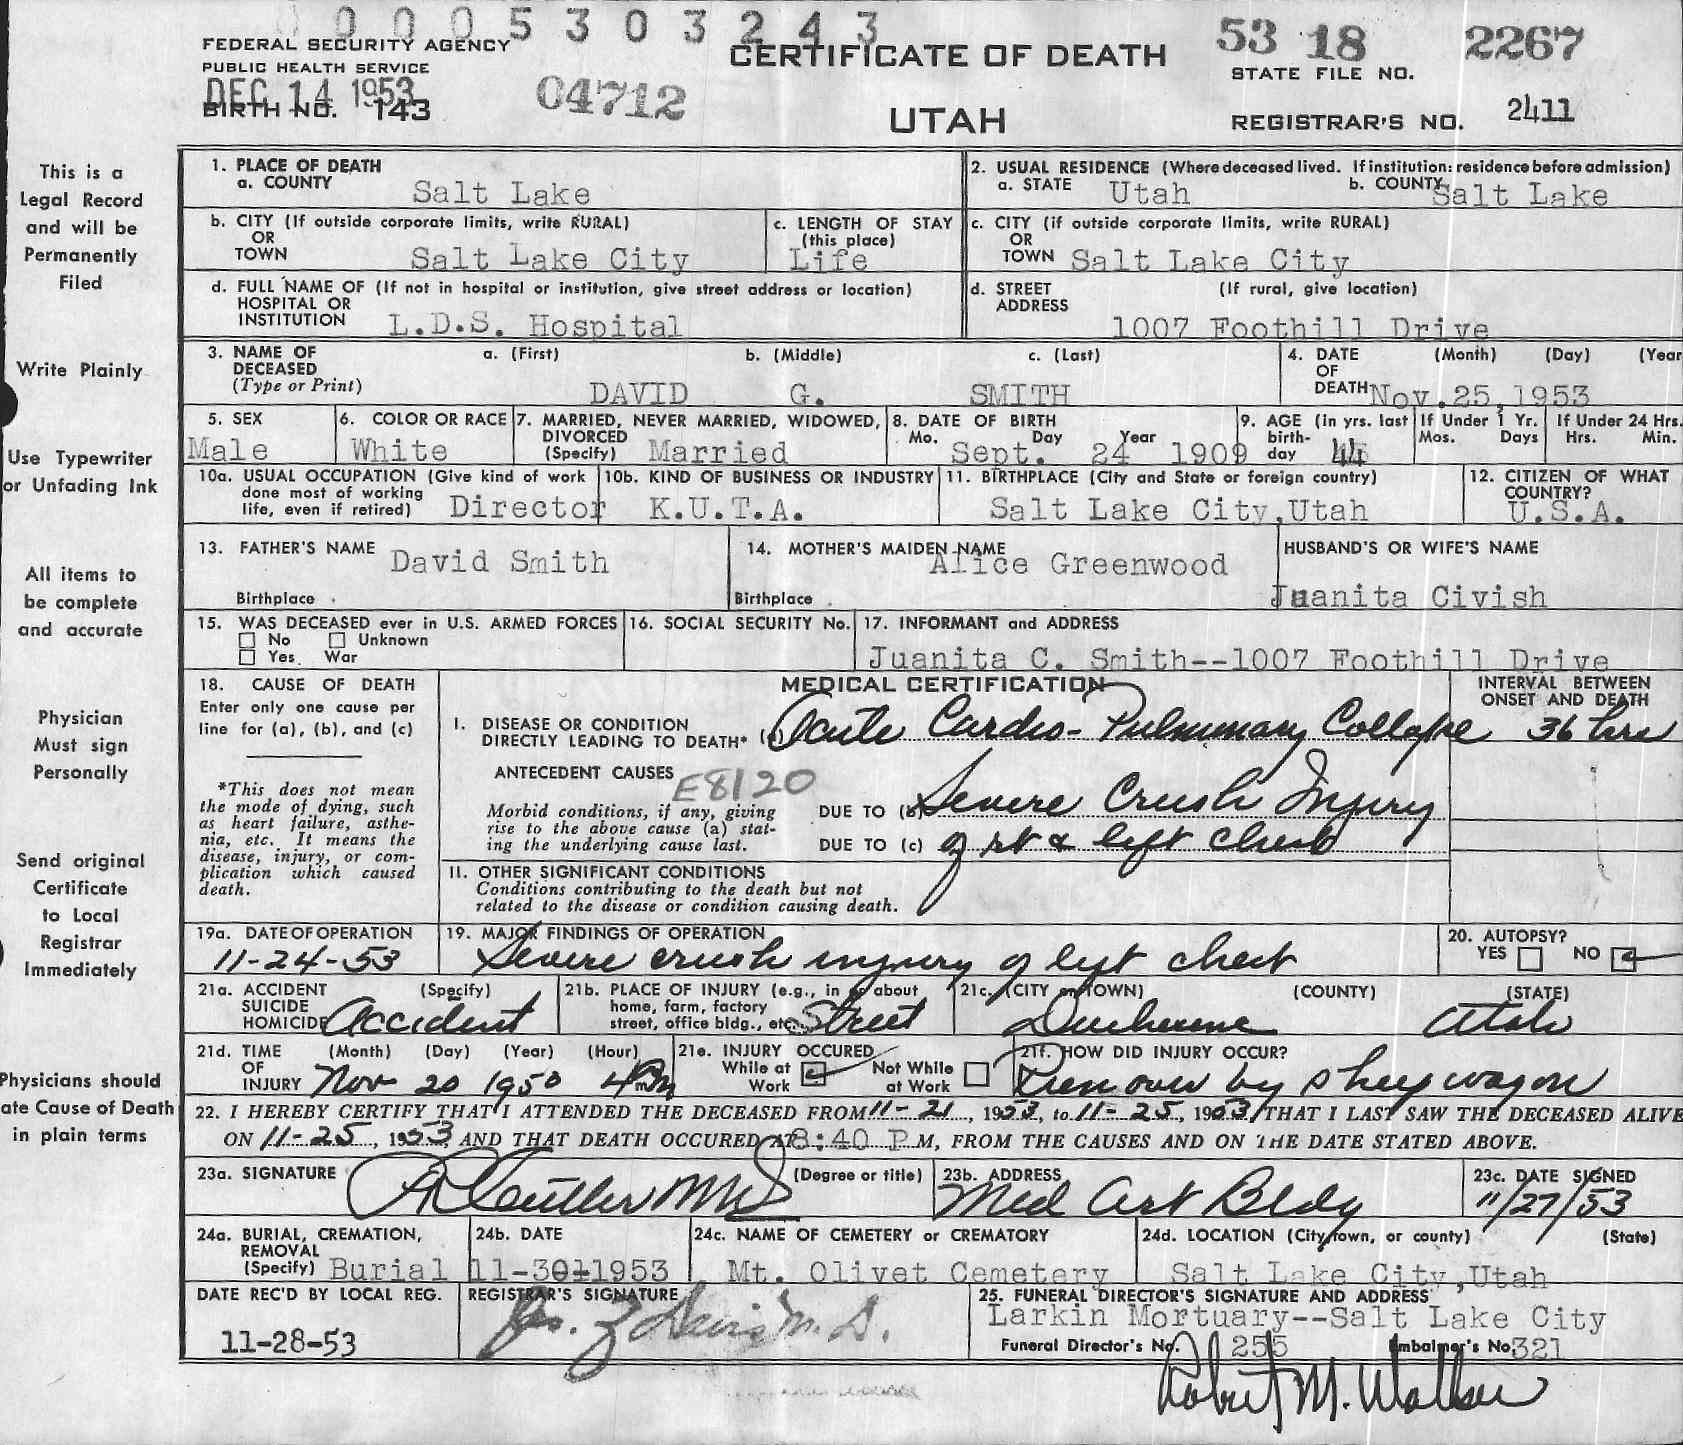 0005303243
FEDERAL SECURITY AGENCY
PUBLIC HEALTH SERVICE
DEC 14 1953
BIRTH NO. 143
04712
CERTIFICATE OF DEATH
UTAH
53 18 2267
STATE FILE NO.
REGISTRAR'S NO. 2411
This is a
Legal Record
and will be
Permanently
Filed
Write Plainly
Use Typewriter
or Unfading Ink
All items to
be complete
and accurate
Physician
Must sign
Personally
Send original
Certificate
to Local
Registrar
Immediately
Physicians should
ate Cause of Death
in plain terms
1. PLACE OF DEATH
a. COUNTY Salt Lake
2. USUAL RESIDENCE (Where deceased lived. If institution: residence before admission)
a. STATE Utah b. COUNTY Salt Lake
b. CITY (If outside corporate limits, write RURAL)
OR
TOWN Salt Lake City
c. LENGTH OF STAY
(this place)
Life
c. CITY (if outside corporate limits, write RURAL)
OR
TOWN Salt Lake City
d. FULL NAME OF (If not in hospital or institution, give street address or location)
HOSPITAL OR
INSTITUTION L.D.S. Hospital
d. STREET (If rural, give location)
ADDRESS
1007 Foothill Drive
3. NAME OF a. (First) b. (Middle) c. (Last)
DECEASED
(Type or Print) DAVID G. SMITH
4. DATE (Month) (Day) (Year
OF
DEATH Nov.25,1953
5. SEX
Male
6. COLOR OR RACE
White
7. MARRIED, NEVER MARRIED, WIDOWED,
DIVORCED
(Specify) Married
8. DATE OF BIRTH
Mo. Day Year
Sept. 24 1909
9. AGE (in yrs. last
birth-
day 44
If Under 1 Yr.
Mos. Days
If Under 24 Hrs.
Hrs. Min.
10a. USUAL OCCUPATION (Give kind of work
done most of working
life, even if retired) Director
10b. KIND OF BUSINESS OR INDUSTRY
K.U.T.A.
11. BIRTHPLACE (City and State or foreign country)
Salt Lake City,Utah
12. CITIZEN OF WHAT
COUNTRY?
U.S.A.
13. FATHER'S NAME David Smith
Birthplace
14. MOTHER'S MAIDEN NAME
Alice Greenwood
Birthplace
HUSBAND'S OR WIFE'S NAME
Juanita Civish
15. WAS DECEASED ever in U.S. ARMED FORCES
No Unknown
Yes War
16. SOCIAL SECURITY No.
17. INFORMANT and ADDRESS
Juanita C. Smith--1007 Foothill Drive
18. CAUSE OF DEATH
Enter only one cause per
line for (a), (b), and (c)
*This does not mean
the mode of dying, such
as heart failure, asthe-
nia, etc. It means the
disease, injury, or com-
plication which caused
death.
MEDICAL CERTIFICATION
INTERVAL BETWEEN
ONSET AND DEATH
I. DISEASE OR CONDITION
DIRECTLY LEADING TO DEATH* (a) Acute Cardio-Pulmonary Collapse 36 hrs
ANTECEDENT CAUSES E8120
Morbid conditions, if any, giving
rise to the above cause (a) stat-
ing the underlying cause last.
DUE TO (b) Severe Crush Injury
DUE TO (c) of rt & left chest
II. OTHER SIGNIFICANT CONDITIONS
Conditions contributing to the death but not
related to the disease or condition causing death.
19a. DATE OF OPERATION
11-24-53
19. MAJOR FINDINGS OF OPERATION
Severe crush injury of left chest
20. AUTOPSY?
YES NO
21a. ACCIDENT (Specify)
SUICIDE
HOMICIDE Accident
21b. PLACE OF INJURY (e.g., in or about
home, farm, factory
street, office bldg., etc. Street
21c. (CITY or TOWN) (COUNTY) (STATE)
Duchesne Utah
21d. TIME (Month) (Day) (Year) (Hour)
OF
INJURY Nov 20 1950 4 pm
21e. INJURY OCCURED
While at Work
Not While at Work
21f. HOW DID INJURY OCCUR?
Run over by sheep wagon
22. I HEREBY CERTIFY THAT I ATTENDED THE DECEASED FROM 11-21, 1953, to 11-25, 1953, THAT I LAST SAW THE DECEASED ALIVE
ON 11-25, 1953, AND THAT DEATH OCCURED AT 8:40 P M, FROM THE CAUSES AND ON THE DATE STATED ABOVE.
23a. SIGNATURE (Degree or title)
23b. ADDRESS
Med Art Bldg
23c. DATE SIGNED
11/27/53
24a. BURIAL, CREMATION,
REMOVAL
(Specify) Burial
24b. DATE
11-30-1953
24c. NAME OF CEMETERY or CREMATORY
Mt. Olivet Cemetery
24d. LOCATION (City, town, or county) (State)
Salt Lake City,Utah
DATE REC'D BY LOCAL REG.
11-28-53
REGISTRAR'S SIGNATURE
M.D.
25. FUNERAL DIRECTOR'S SIGNATURE AND ADDRESS
Larkin Mortuary--Salt Lake City
Funeral Director's No. 255 Embalmer's No. 321
Robert M. Walker